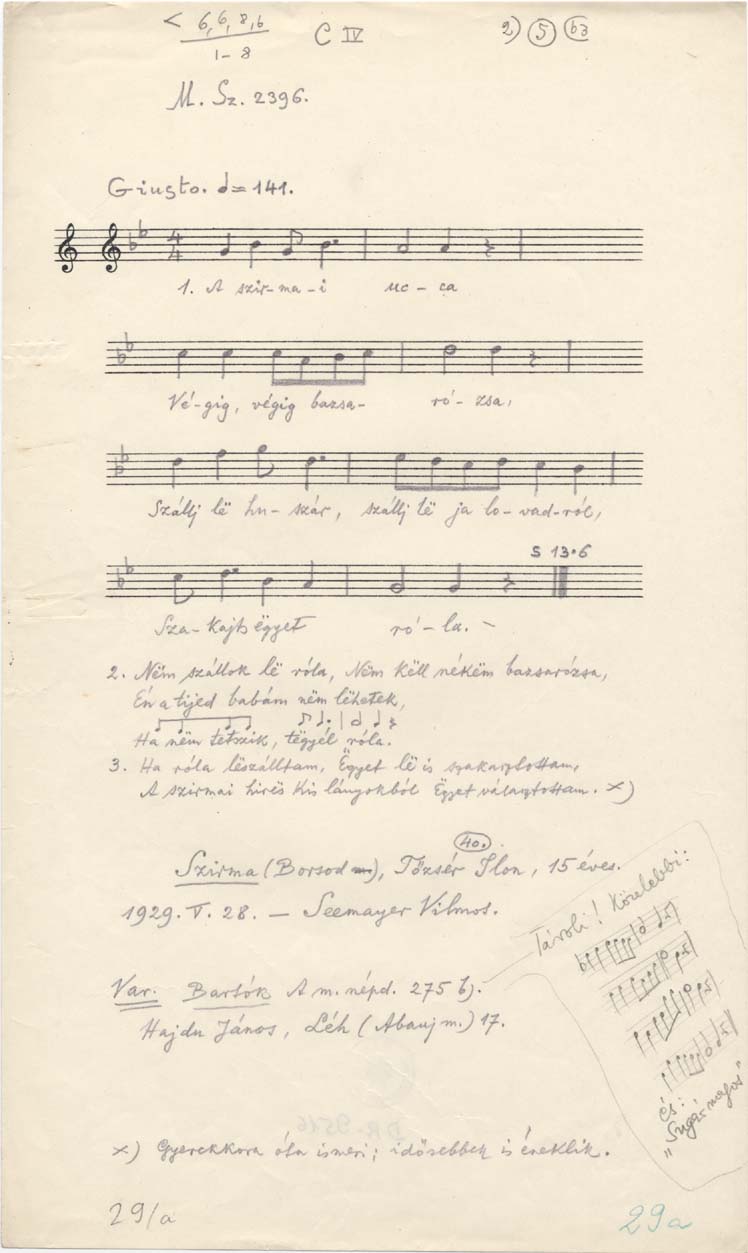 < 6, 6, 8, 6
1-8
C IV
2) 5 b3
M. Sz. 2396.
Giusto. = 141.
4
4
1. A szir-ma-i uc-ca
Vé-gig, végig bazsa- ró-zsa,
Szállj lë hu-szár, szállj lë ja lo-vad-ról,
S 13•6
Sza-kajts ëgyet ró-la. -
2. Nëm szállok lë róla, Nëm këll nékëm bazsarózsa,
Én a tijed babám nëm lëhetek,
Ha nëm tetszik, tëgyél róla.
3. Ha róla lëszálltam, Ëgyet lë is szakasztottam,
A szirmai hirës kis lányokból Ëgyet választottam. x)
40.
Szirma (Borsod m), Tőzsér Ilon, 15 éves.
1929. V. 28. - Seemayer Vilmos.
Távoli! Közelebbi:
Var. Bartók A m. népd. 275 b).
Hajdu János, Léh (Abauj m.) 17.
és:
"Sugár magos"
DR. 9516
x) Gyerekkora óta ismeri; idősebbek is éneklik.
29/a
29a